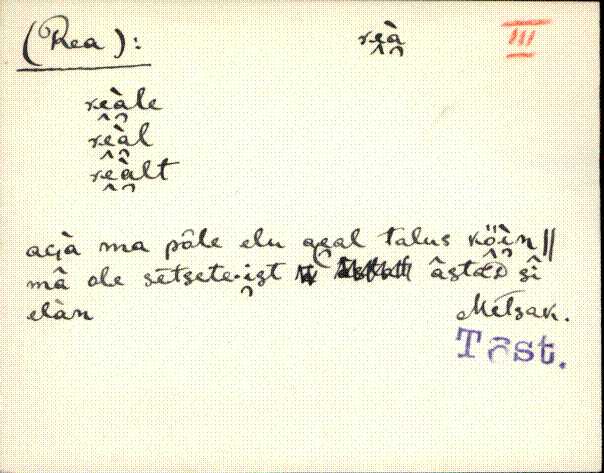 (Rea): reà III
reàle
reàl
reàlt
acjà ma pôle elu aeal talus köìn ||
mâ ole sētsete·ist âstaD sî
elàn Mētsak.
Tõst.